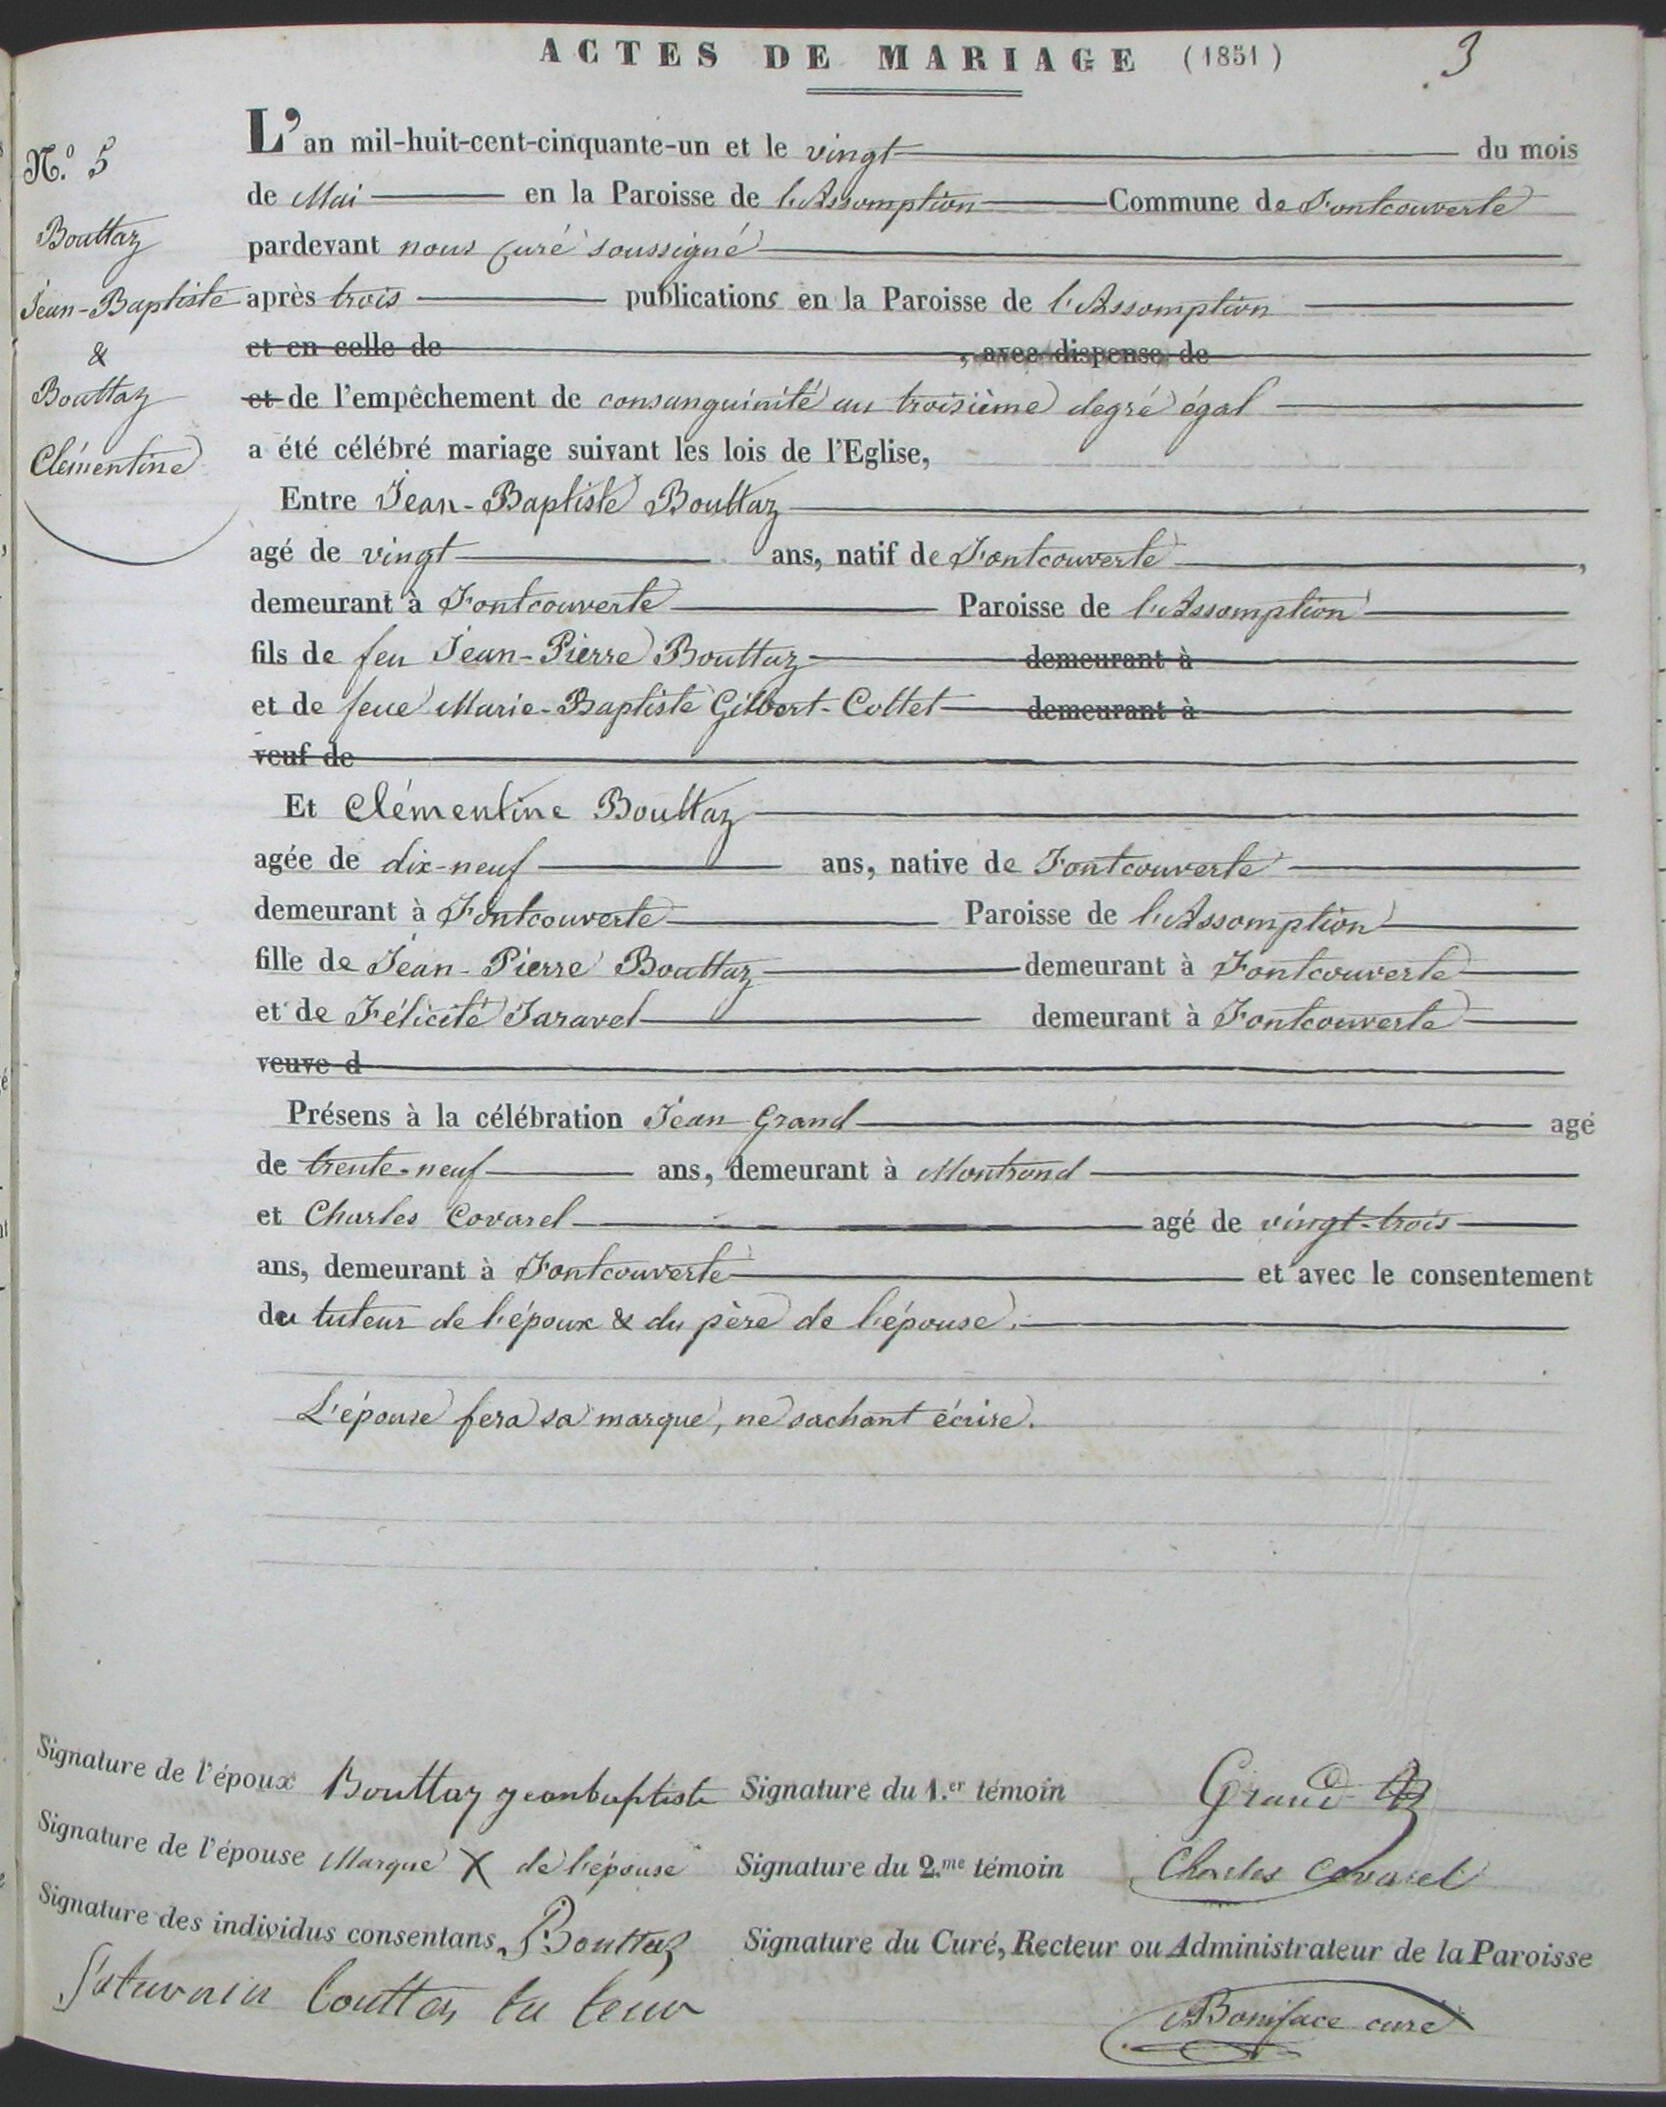 ACTES DE MARIAGE (1851) 3
N.º 5
Bouttaz
Jean-Baptiste
&
Bouttaz
Clémentine
L'an mil-huit-cent-cinquante-un et le vingt du mois
de Mai en la Paroisse de l'Assomption Commune de Fontcouverte
pardevant nous curé soussigné
après trois publications en la Paroisse de l'Assomption
et en celle de , avec dispense de
et de l'empêchement de consanguinité au troisième degré égal
a été célébré mariage suivant les lois de l'Eglise,
Entre Jean-Baptiste Bouttaz
agé de vingt ans, natif de Fontcouverte ,
demeurant à Fontcouverte Paroisse de l'Assomption
fils de feu Jean-Pierre Bouttaz demeurant à
et de feue Marie-Baptiste Gilbert-Collet demeurant à
veuf de
Et Clémentine Bouttaz
agée de dix-neuf ans, native de Fontcouverte
demeurant à Fontcouverte Paroisse de l'Assomption
fille de Jean-Pierre Bouttaz demeurant à Fontcouverte
et de Félicité Taravel demeurant à Fontcouverte
veuve d
Présens à la célébration Jean Grand agé
de trente-neuf ans, demeurant à Montrond
et Charles Covarel agé de vingt-trois
ans, demeurant à Fontcouverte et avec le consentement
du tuteur de l'époux & du père de l'épouse.
L'épouse fera sa marque, ne sachant écrire.
Signature de l'époux Bouttaz jeanbaptiste Signature du 1.er témoin Grand
Signature de l'épouse Marque X de l'épouse Signature du 2.me témoin Charles Covarel
Signature des individus consentans, Bouttaz Signature du Curé, Recteur ou Administrateur de la Paroisse
Saturnin Bouttaz tu teur
Boniface curé